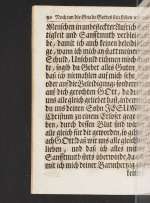 90 Noch um die Gnade Gottes das Leben
Menschen in unbefleckter Aufrich-
tigkeit und Sanfftmuth verblei-
be, damit ich auch keinen beleidi-
ge, wann ich mich an statt meiner
Schuld, Unschuld rühmen möch-
te, sagib du Geber alles Guten
daß ich niemahlen auf mich sehe
oder auf die Beleidigung, sondern
auf dich gerechten GOtt, der du
uns alle gleich geliebet hast, indem
du uns deinen Sohn JESUM
Christum zu einem Erlöser gege-
ben, durch dessen Blut sind wir
alle gleich für dir geworden, so gib
ach GOtt daß wir uns alle gleich
lieben, und daß ich alles mit
Sanfftmuth stets überwinde, da-
mit ich mich deiner Barmhertzig-
keit